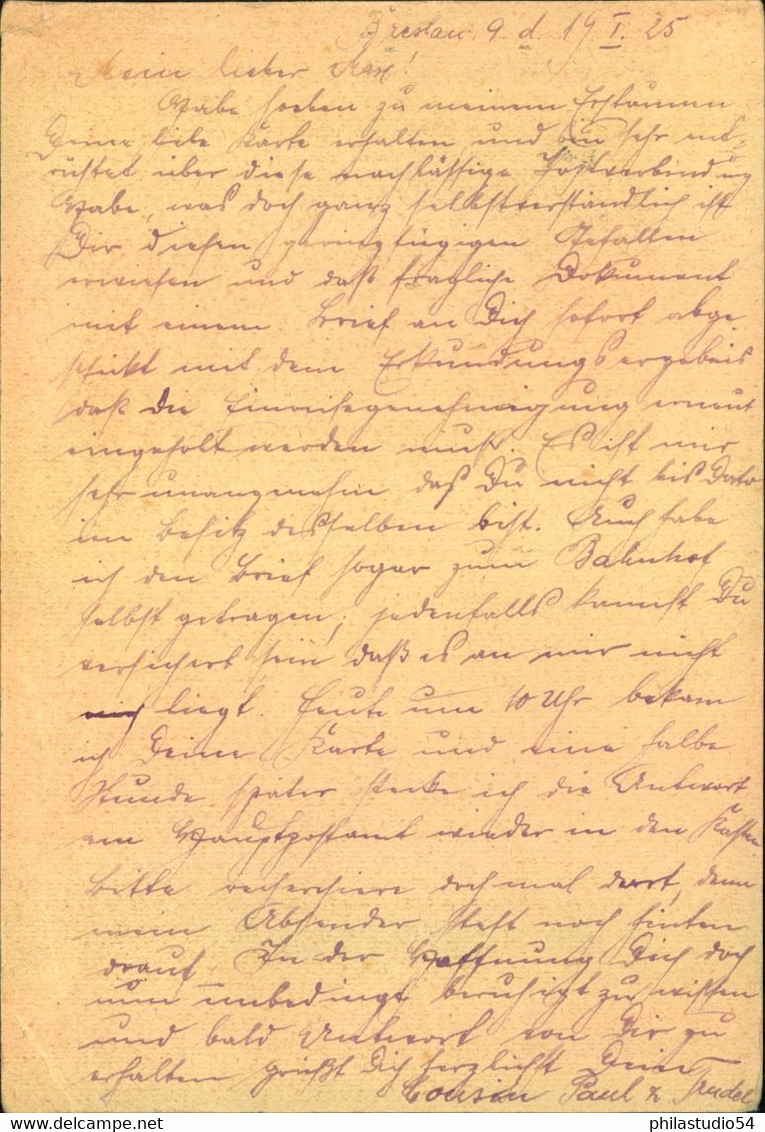 Breslau 9. d. 19 I. 25
Mein lieber Max!
Habe soeben zu meinem Erstaunen
Deine liebe Karte erhalten und bin sehr ent-
rüstet über diese nachlässige Postverbindung
Habe, was doch ganz selbstverständlich ist
Dir diesen geringfügigen Gefallen
erwiesen und daß fragliche Dokument
mit einem Brief an Dich sofort abge
schickt mit dem Erkundungsergebnis
daß die Einreisegenehmigung erneut
eingeholt werden muß. Es ist mir
sehr unangenehm daß Du nicht bis Dato
im Besitz desselben bist. Auch habe
ich den Brief sogar zum Bahnhof
selbst getragen, jedenfalls kannst Du
versichert sein daß es an mir nicht
liegt. Heute um 10 Uhr bekam
ich Deine Karte und eine halbe
Stunde später stecke ich die Antwort
am Hauptpostamt wieder in den Kasten
Bitte recherchiere doch mal dort, denn
mein Absender steht noch hinten
drauf. In der Hoffnung Dich doch
nun unbedingt beruhigt zu wissen
und bald Antwort von Dir zu
erhalten grüßt Dich herzlichst Dein
Cousin Paul & Trudel
philastudio54